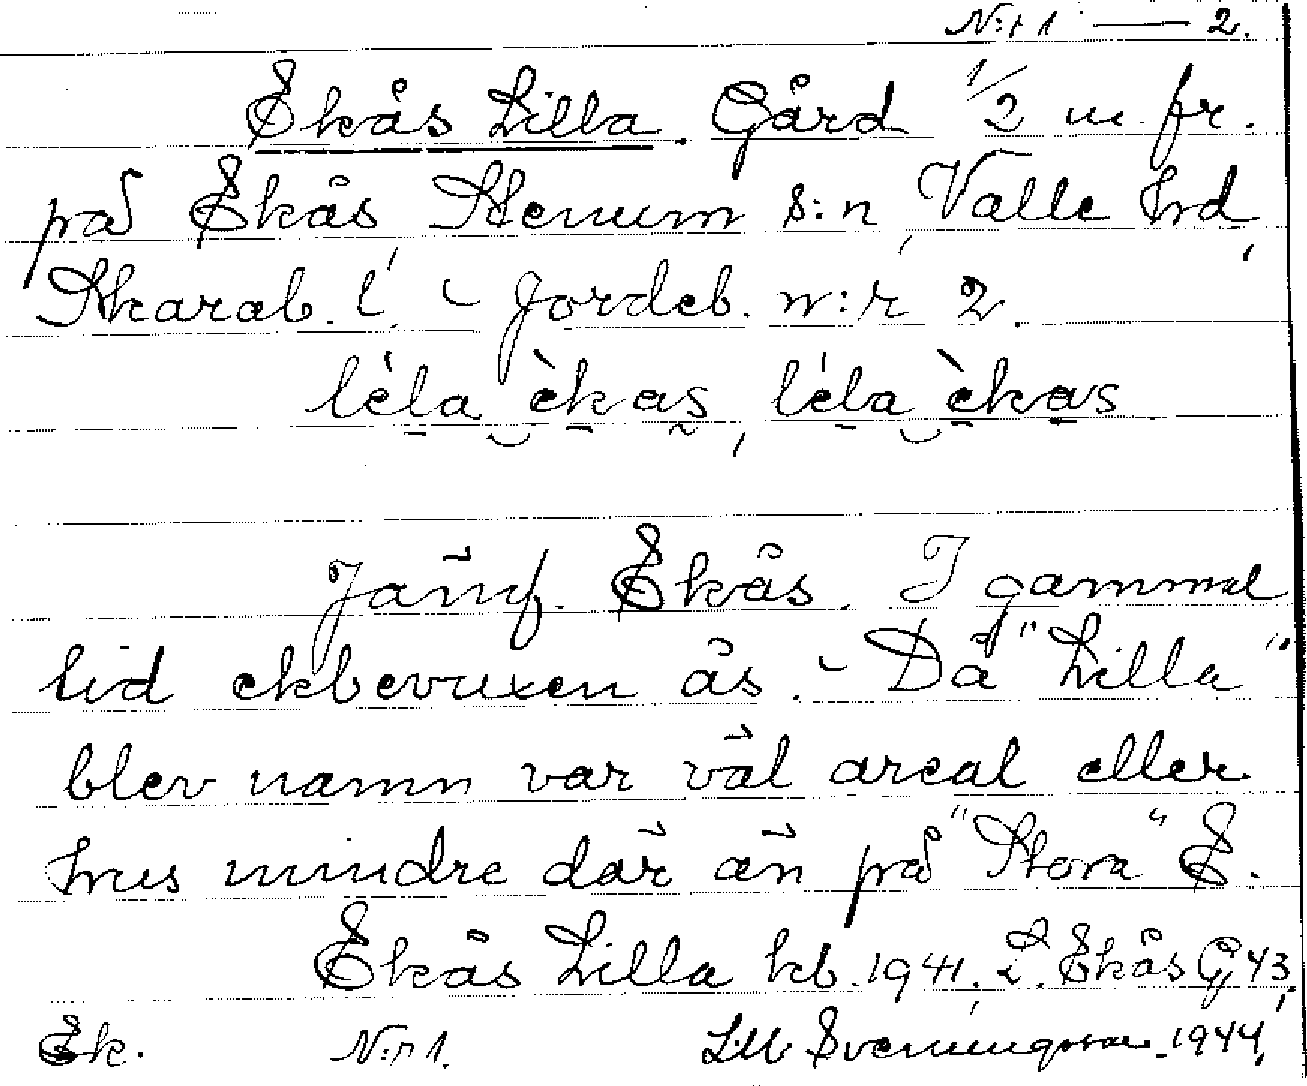 N:r 1 — 2.
Ekås Lilla. Gård 1/2 m fr.
på Ekås, Stenum s:n, Valle hrd,
Skarab. l. - Jordeb. n:r 2.
léla èkas, léla èkas
Jämf. Ekås. I gammal
tid ekbevuxen ås. - Då "Lilla"
blev namn var väl areal eller
hus mindre där än på "Stora" E.
Ekås Lilla kb. 1941, L. Ekås G 43,
Ek. N:r 1. Lill Svenningsson 1944.